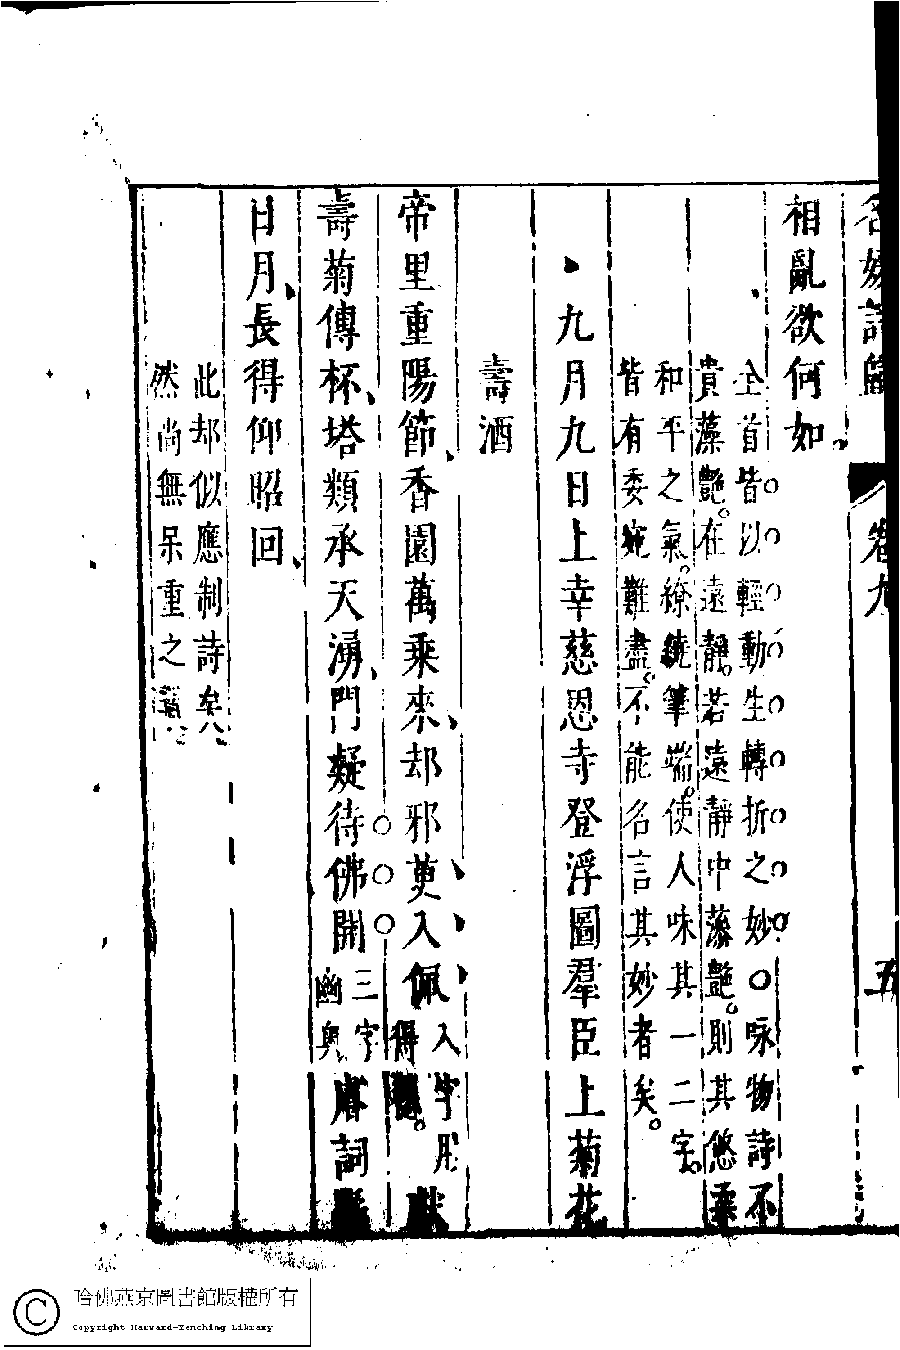 名媛詩歸 卷九 五
相亂欲何如
全首皆以輕動生轉折之妙○咏物詩不
貴藻艷在遠靜若遠靜中藻艷則其悠柔
和平之氣繚繞筆端使人味其一二字
皆有委宛難盡不能名言其妙者矣
九月九日上幸慈恩寺登浮圖群臣上菊花
壽酒
帝里重陽節香園萬乘來却邪萸入佩
入字用
得
獻
壽菊傳杯塔類承天湧門疑待佛開
三字
幽奧
睿詞懸
日月長得仰昭回
此却似應制詩矣
然尚無呆重之
哈佛燕京圖書館版權所有
Copyright Harvard-Yenching Library